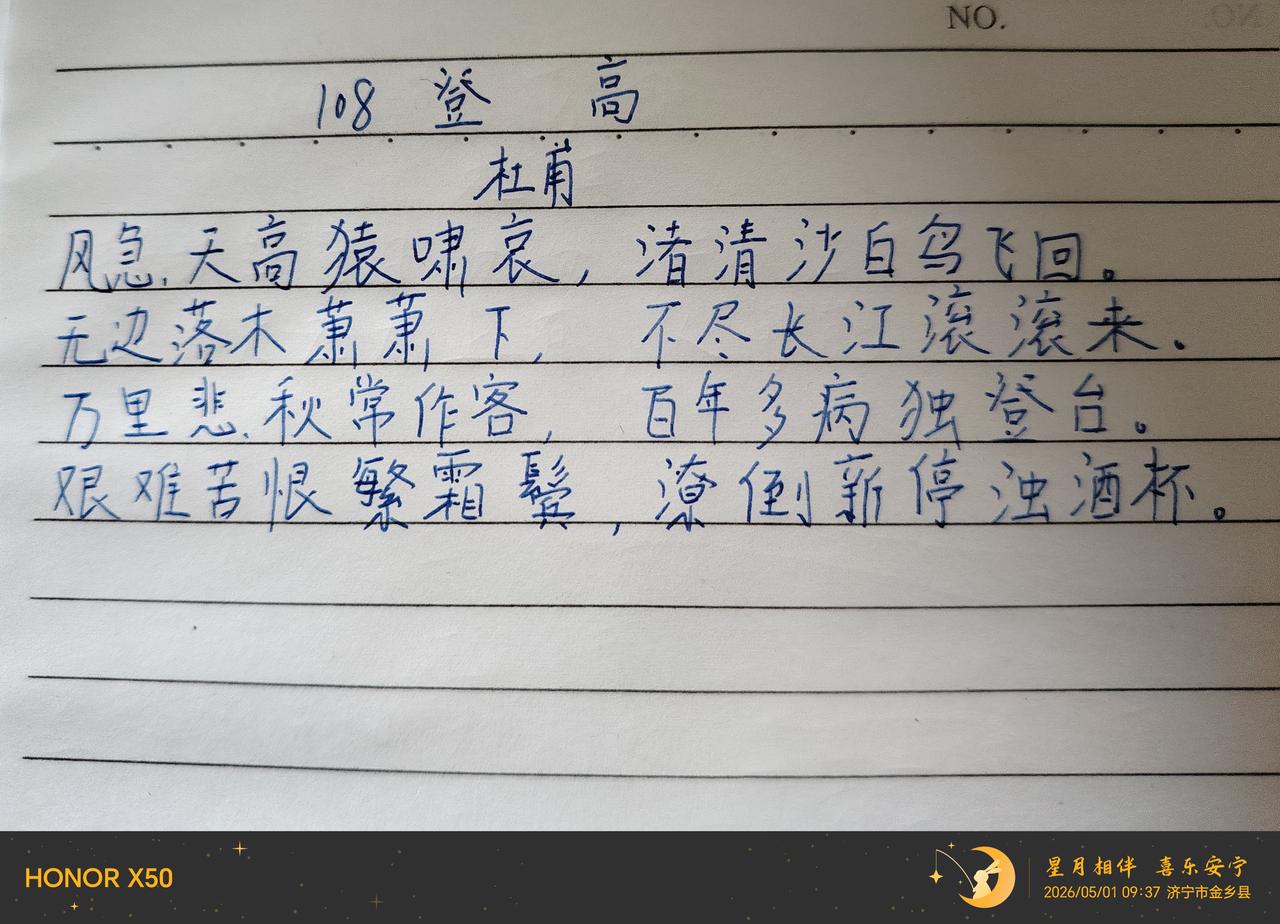 NO.
108 登 高
杜甫
风急天高猿啸哀，渚清沙白鸟飞回。
无边落木萧萧下，不尽长江滚滚来．
万里悲秋常作客，百年多病独登台。
艰难苦恨繁霜鬓，潦倒新停浊酒杯。
HONOR X50
星月相伴 喜乐安宁
2026/05/01 09:37 济宁市金乡县